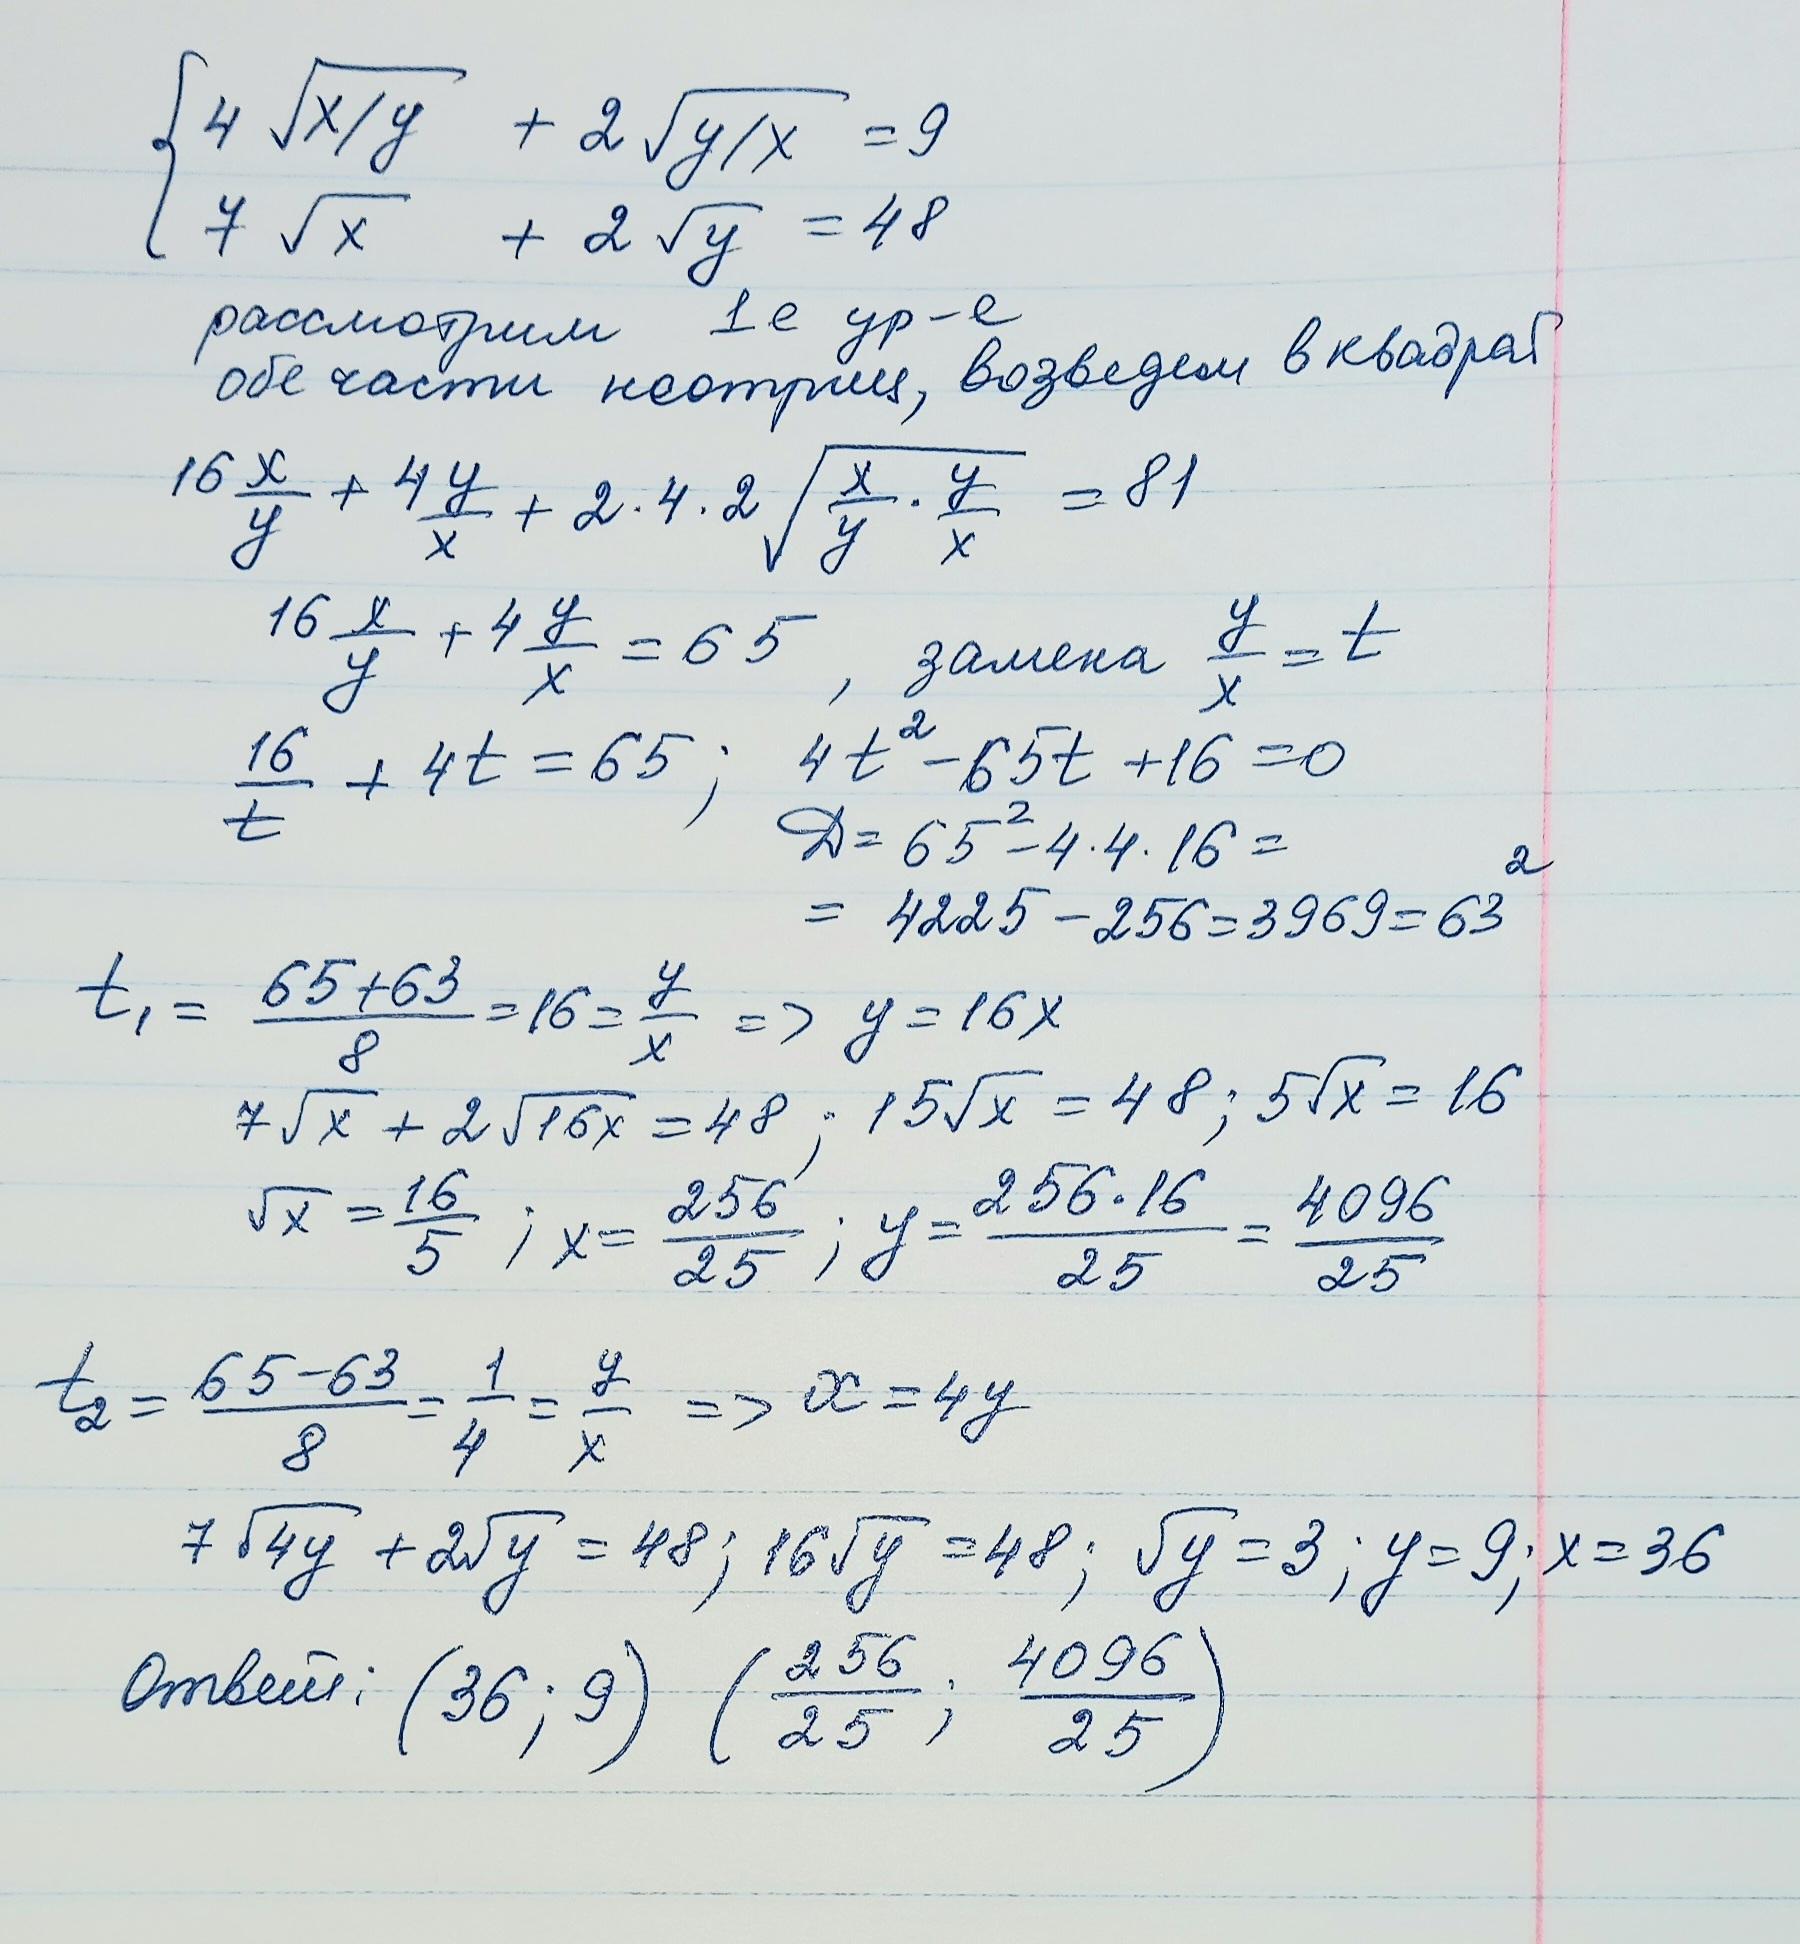 { 4 √(x/y) + 2 √(y/x) = 9
7 √x + 2 √y = 48
рассмотрим 1е ур-е
обе части неотриц, возведем в квадрат
16 x/y + 4 y/x + 2·4·2 √(x/y · y/x) = 81
16 x/y + 4 y/x = 65, замена y/x = t
16/t + 4t = 65; 4t² - 65t + 16 = 0
D = 65² - 4·4·16 =
= 4225 - 256 = 3969 = 63²
t₁ = (65+63)/8 = 16 = y/x => y = 16x
7√x + 2√(16x) = 48; 15√x = 48; 5√x = 16
√x = 16/5; x = 256/25; y = 256·16/25 = 4096/25
t₂ = (65-63)/8 = 1/4 = y/x => x = 4y
7√(4y) + 2√y = 48; 16√y = 48; √y = 3; y = 9; x = 36
Ответ: (36; 9) (256/25; 4096/25)